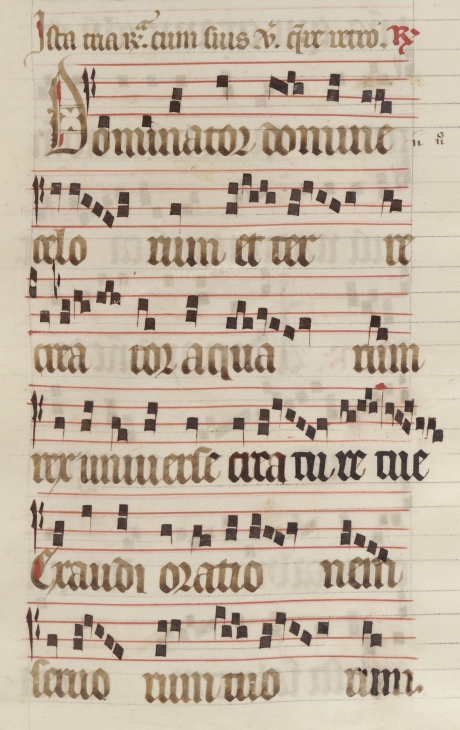 Ista tria R. cum suis V. q̄re retro. R.
Dominator domine
celo rum et ter re
crea tor aqua rum
rex universe crea tu re tue
Exaudi oratio nem
servo rum tuo rum.